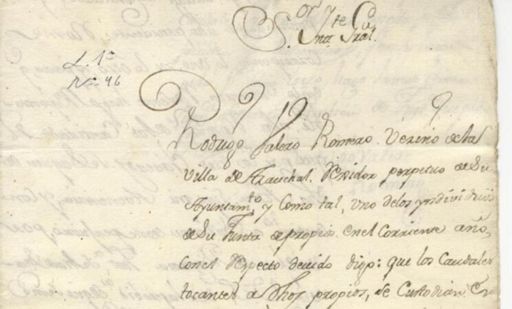 S.or Yte
Gral.
L. 1ª
No. 46
Rodrigo Valero Romero. Vezino de la
Villa de Arauchal. Rexidor perpetuo de su
Ayuntam.to y como tal, uno delos yndividuos
de su Junta de propios en el Corriente año,
con el respecto devido digo: que los Caudales
tocantes a dhos propios, se Custodian en